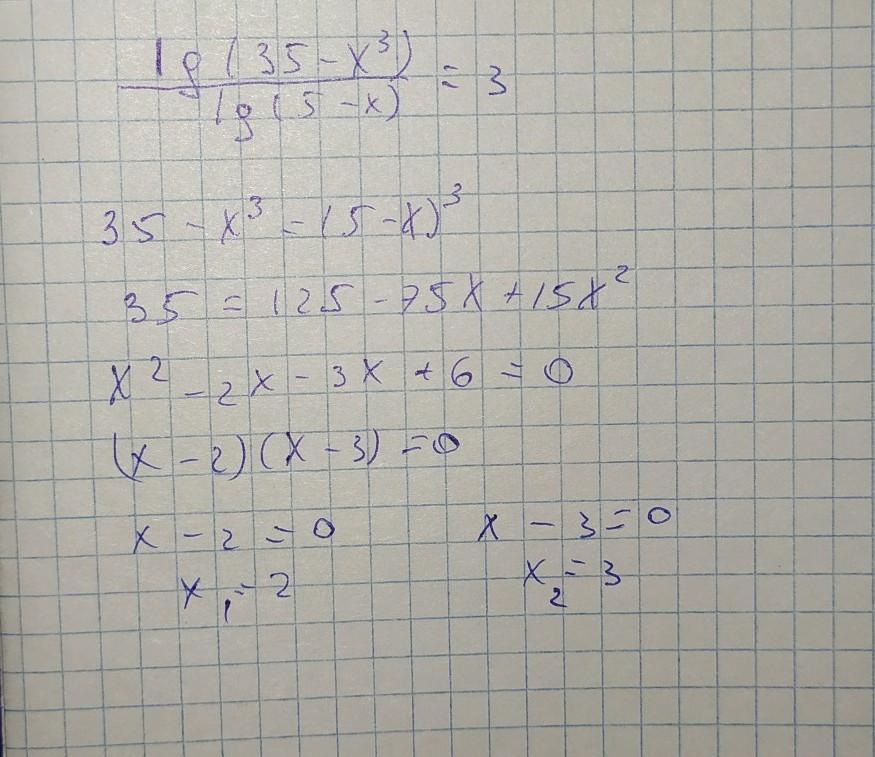 lg(35-x³)
lg(5-x) = 3
35-x³=(5-x)³
35=125-75x+15x²
x²-2x-3x+6=0
(x-2)(x-3)=0
x-2=0 x-3=0
x₁=2 x₂=3